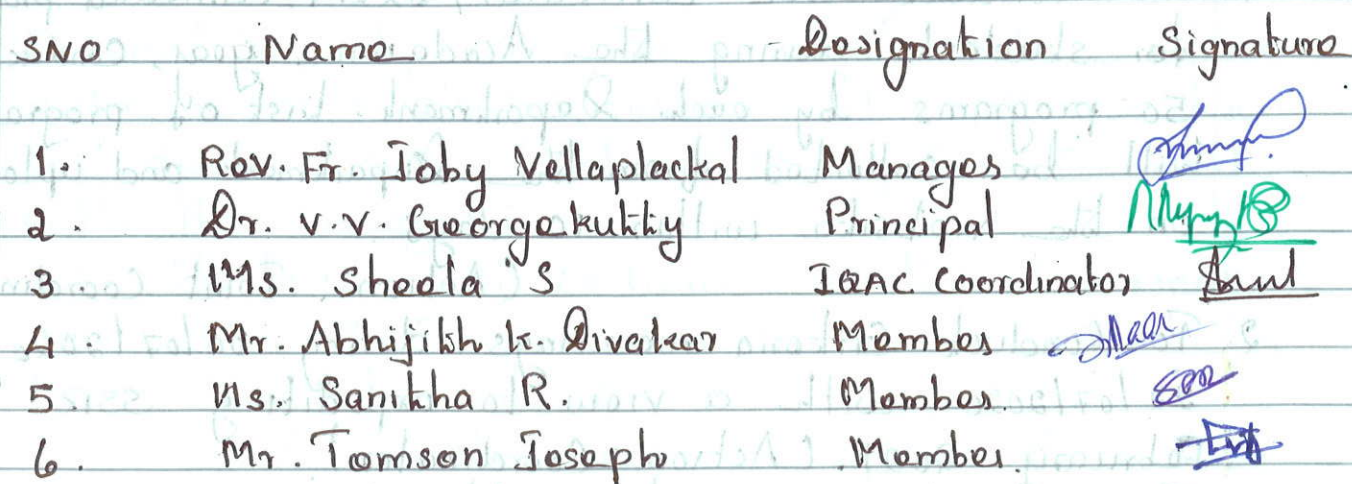 SNO Name Designation Signature
1. Rev. Fr. Joby Vellaplackal Manager
2. Dr. V.V. Georgekutty Principal
3. Ms. Sheela S IQAC Coordinator
4. Mr. Abhijith K. Divakar Member
5. Ms. Sanitha R. Member.
6. Mr. Tomson Joseph Member.